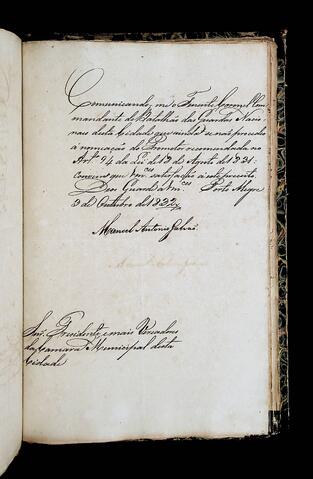 Communicando-me o Tenente Coronel Com
mandante do Batalhão das Guardas Nacio
naes desta Cidade que ainda se não procedeo
á nomeação do Promotor recommendada no
Artº 94 da Lei de 18 de Agosto de 1831:
Convem que Vmces satisfação a este preceito.
Deos Guarde a Vmces Porto Alegre
3 de Outubro de 1832
Manoel Antonio Galvão
Snr. Presidente e mais Vereadores
da Camara Municipal desta
Cidade